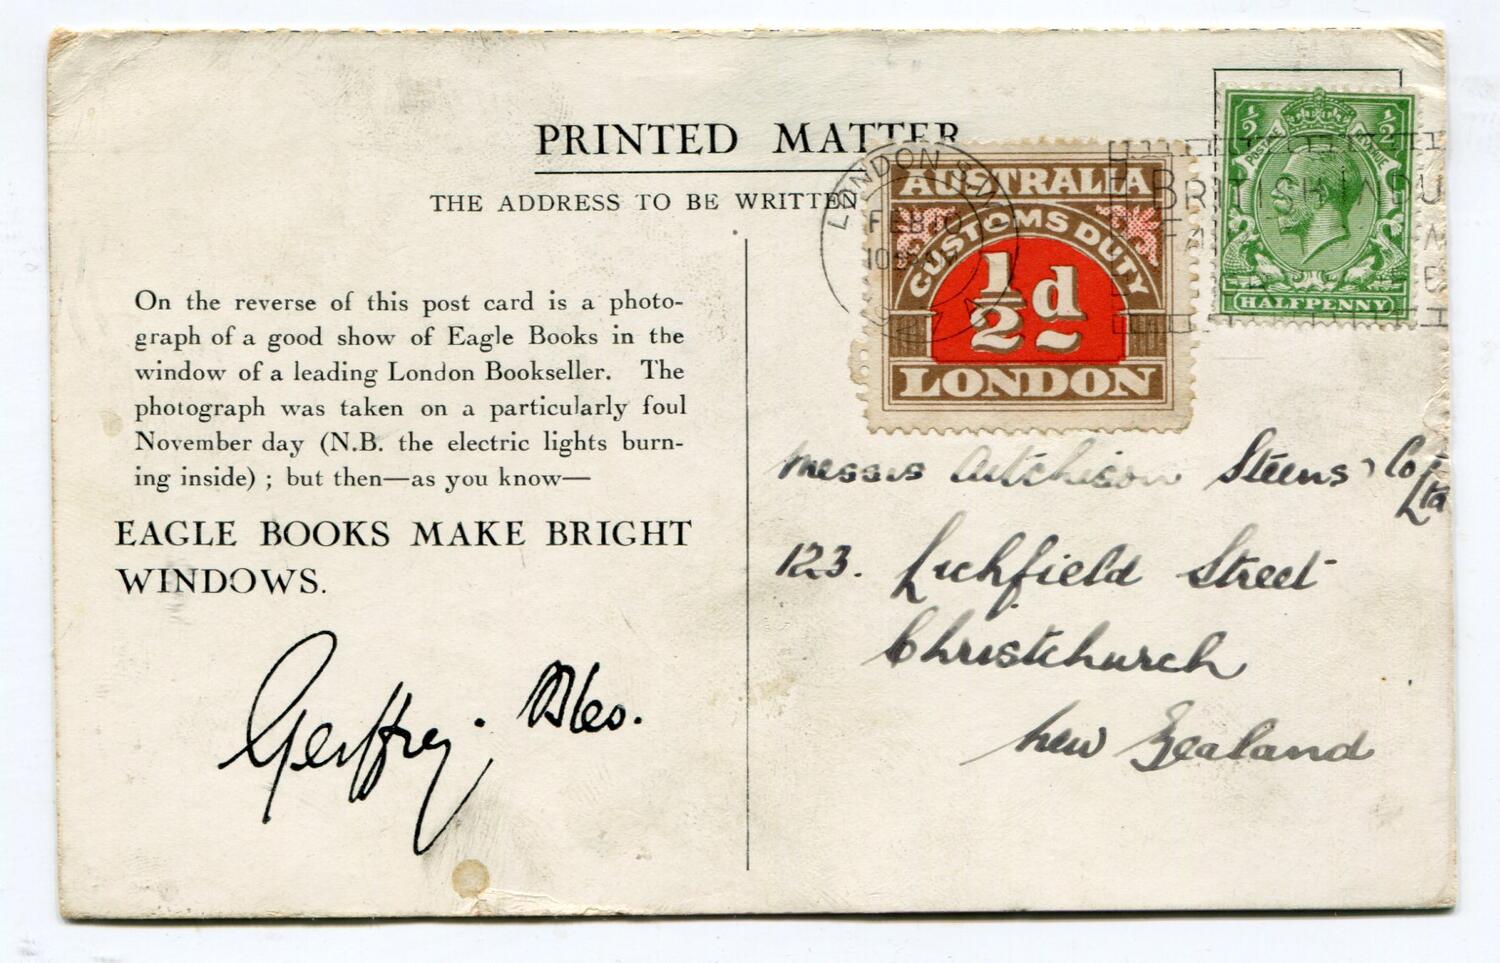 PRINTED MATTER
THE ADDRESS TO BE WRITTEN
LONDON S.W.
FEB 10
AUSTRALIA
CUSTOMS DUTY
½d
LONDON
½ ½
POSTAGE REVENUE
HALFPENNY
BRITISH INDU
On the reverse of this post card is a photo-
graph of a good show of Eagle Books in the
window of a leading London Bookseller. The
photograph was taken on a particularly foul
November day (N.B. the electric lights burn-
ing inside) ; but then—as you know—
EAGLE BOOKS MAKE BRIGHT
WINDOWS.
Geoffrey. Bles.
Messrs Aitchison Steens, Co
Ltd
123. Lichfield Street
Christchurch
New Zealand